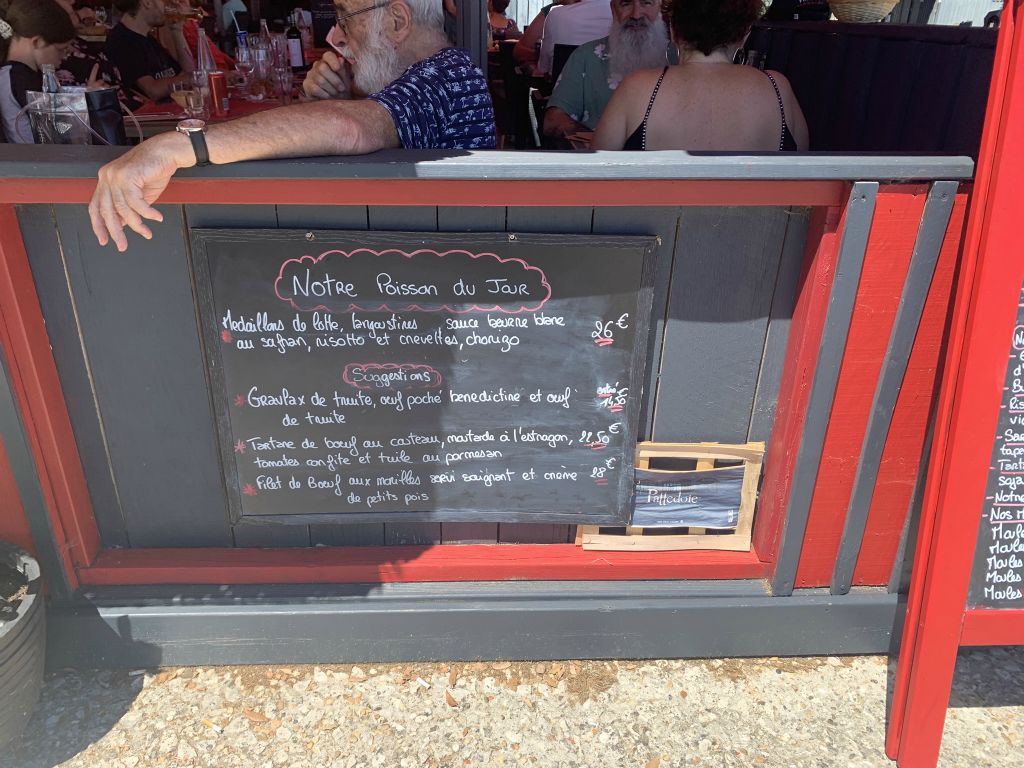 Notre Poisson du Jour
Medaillons de lotte, langoustines sauce beurre blanc
au safran, risotto et crevettes, chorizo
26€
Suggestions
Gravlax de truite, œuf poché benedictine et œuf
de truite
entré
14,50€
Tartare de bœuf au couteau, mustarde à l'estragon, 22,50€
tomates confite et tuile au parmesan
Filet de Bœuf aux morilles servi saignant et crème 28€
de petits pois
Pattedoie
- Notre
- Nos M
Moules
Moules
Moules
Moules
Moules